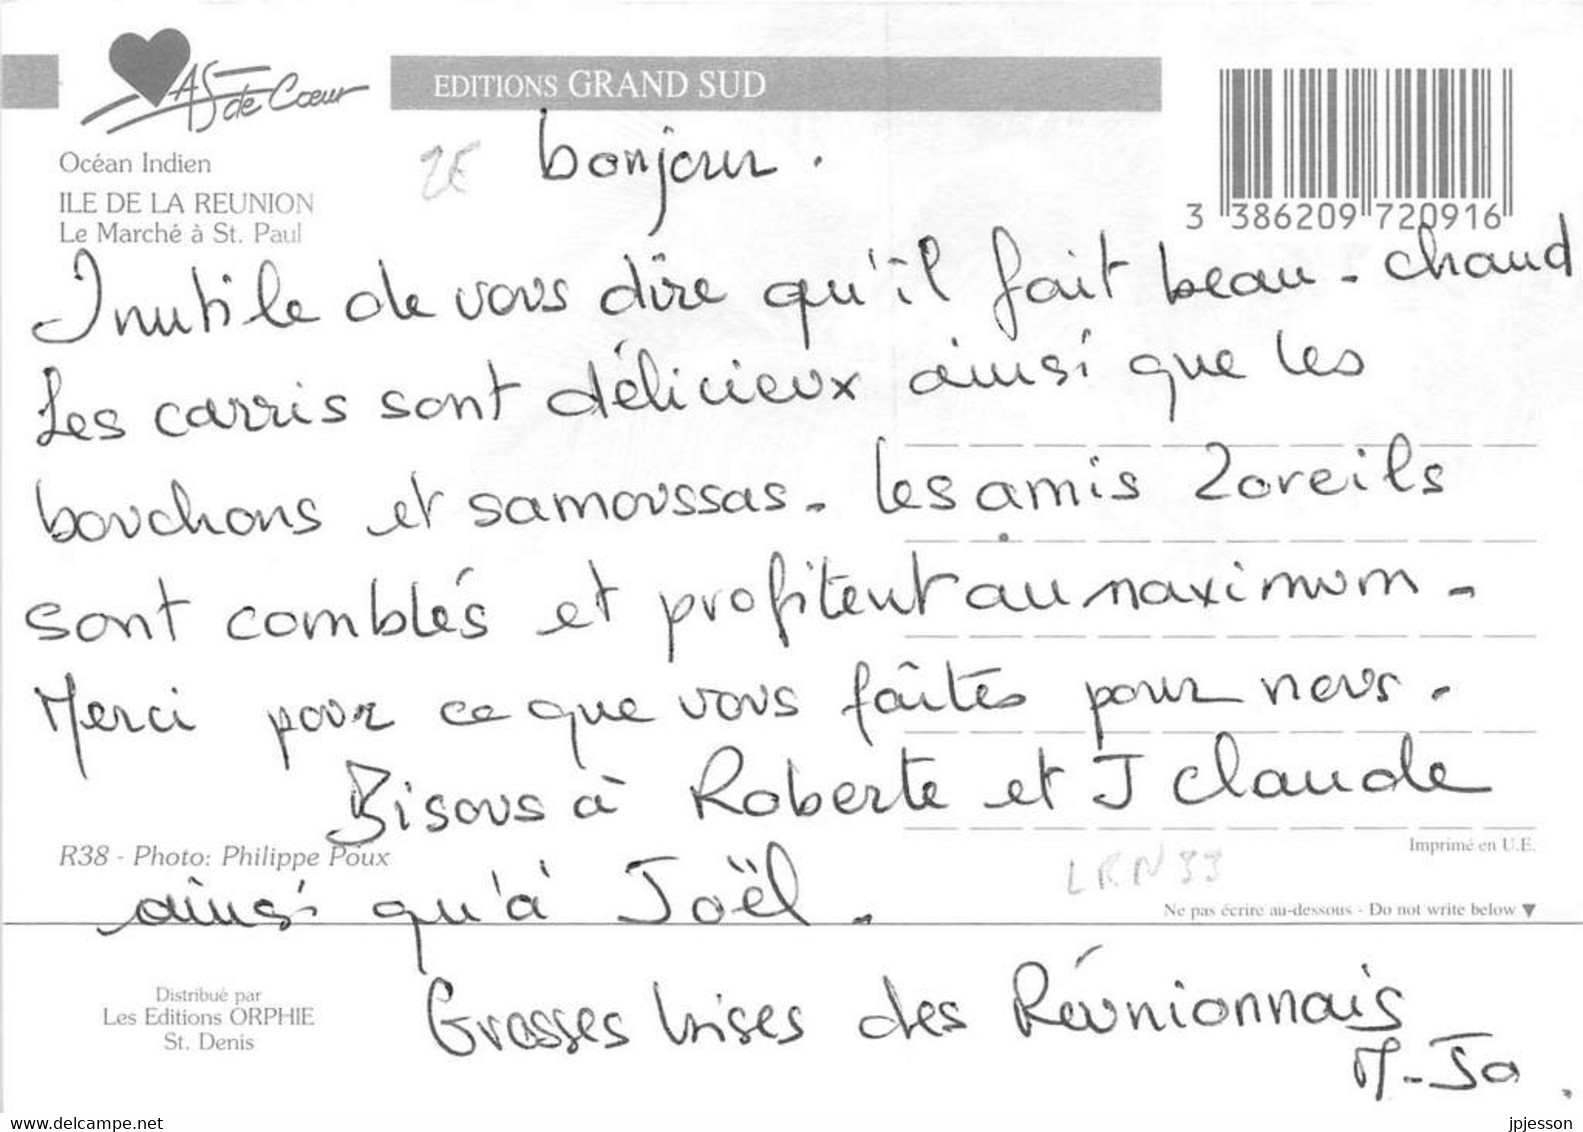 AS de Coeur
EDITIONS GRAND SUD
Océan Indien
ILE DE LA REUNION
Le Marché à St. Paul
2E
3 386209 720916
bonjour.
Inutile de vous dire qu'il fait beau - chaud
Les carris sont délicieux ainsi que les
bouchons et samoussas. Les amis Zoreils
sont comblés et profitent au maximum -
Merci pour ce que vous faîtes pour nous.
Bisous à Roberte et J Claude
ainsi qu'à Joël.
R38 - Photo: Philippe Poux
Imprimé en U.E.
LRN33
Ne pas écrire au-dessous - Do not write below ▼
Distribué par
Les Editions ORPHIE
St. Denis
Grosses bises des Réunionnais
M-Jo.
www.delcampe.net
jpjesson